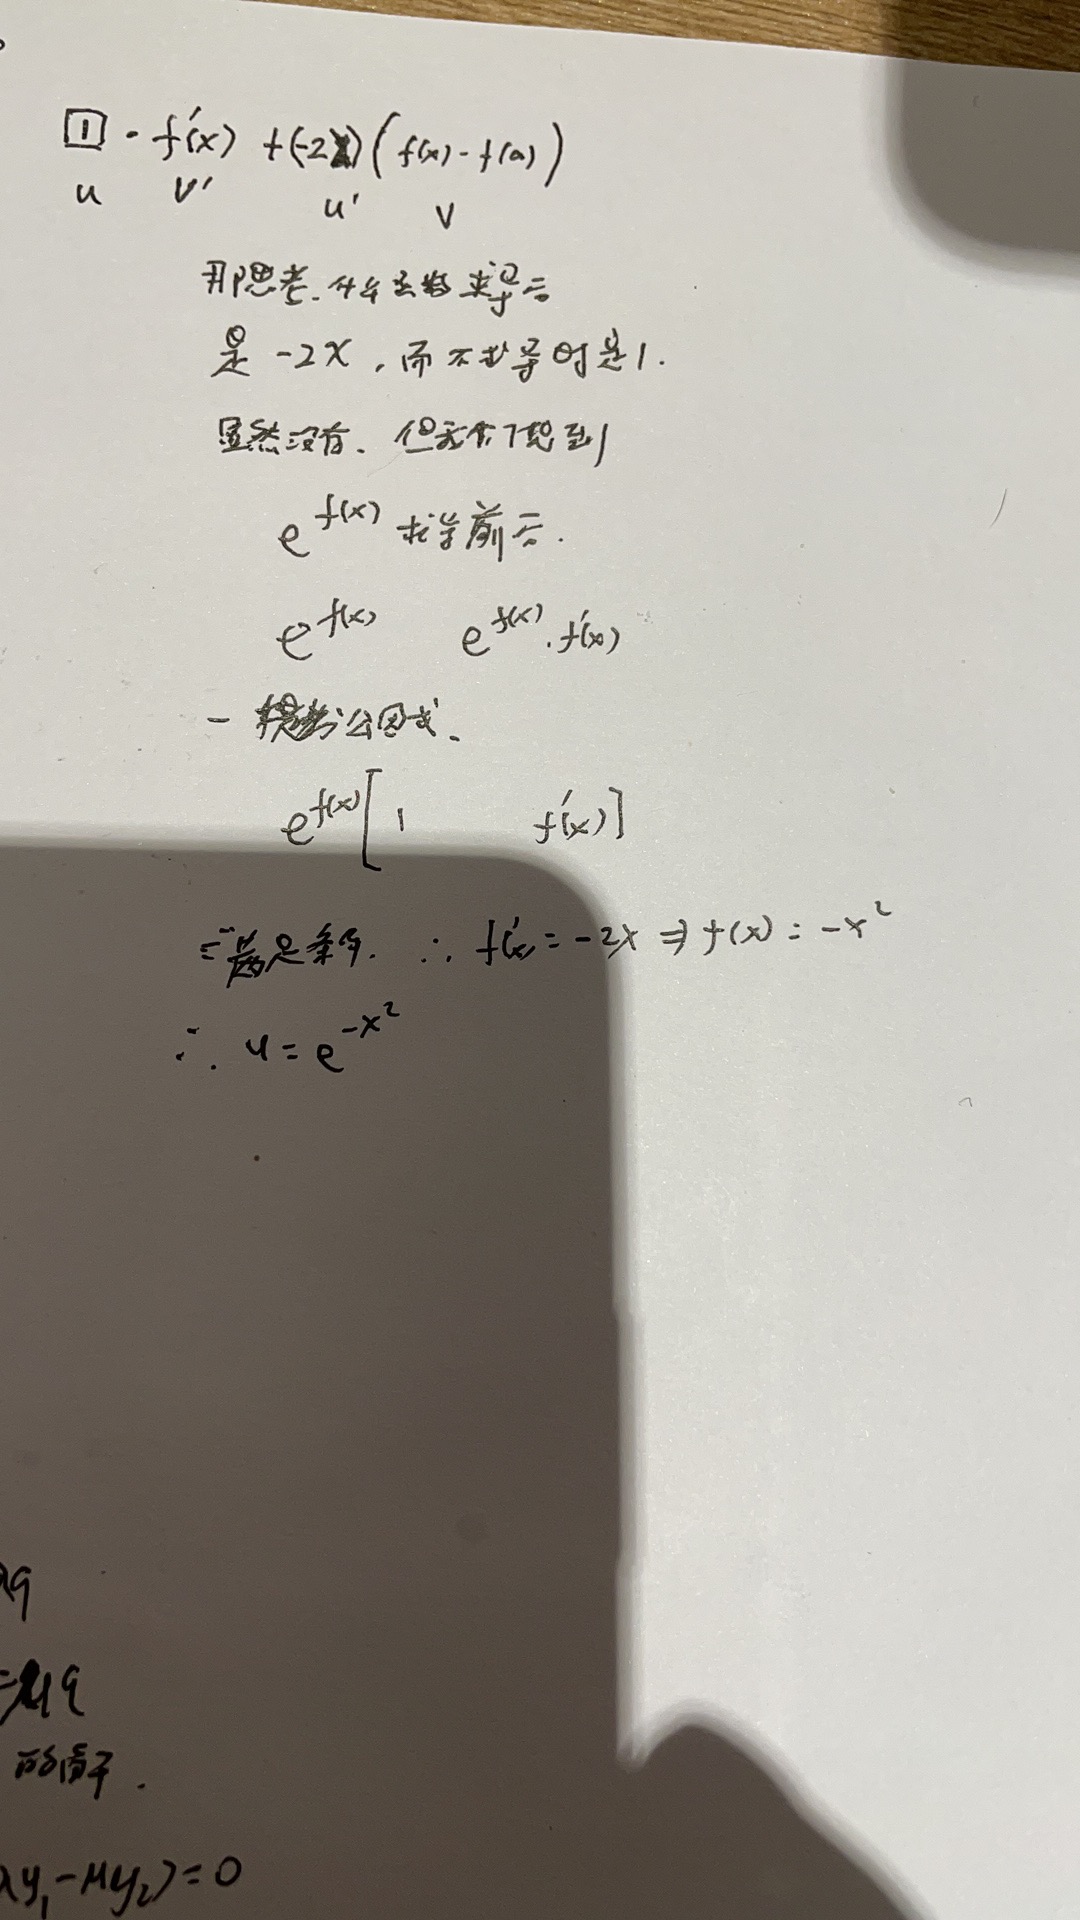 1 · f'(x) + (-2x)(f(x) - f(a))
u v' u' v
那思考、什么函数求导后
是 -2x，而不求导时是1.
显然没有、但我们了想到
e^{f(x)} 求导前后.
e^{f(x)} e^{f(x)}·f'(x)
一提公因式、
e^{f(x)}[1 f'(x)]
满足条件. ∴ f'(x) = -2x ⇒ f(x) = -x²
∴ u = e^{-x²}
λy₁ - μy₂) = 0